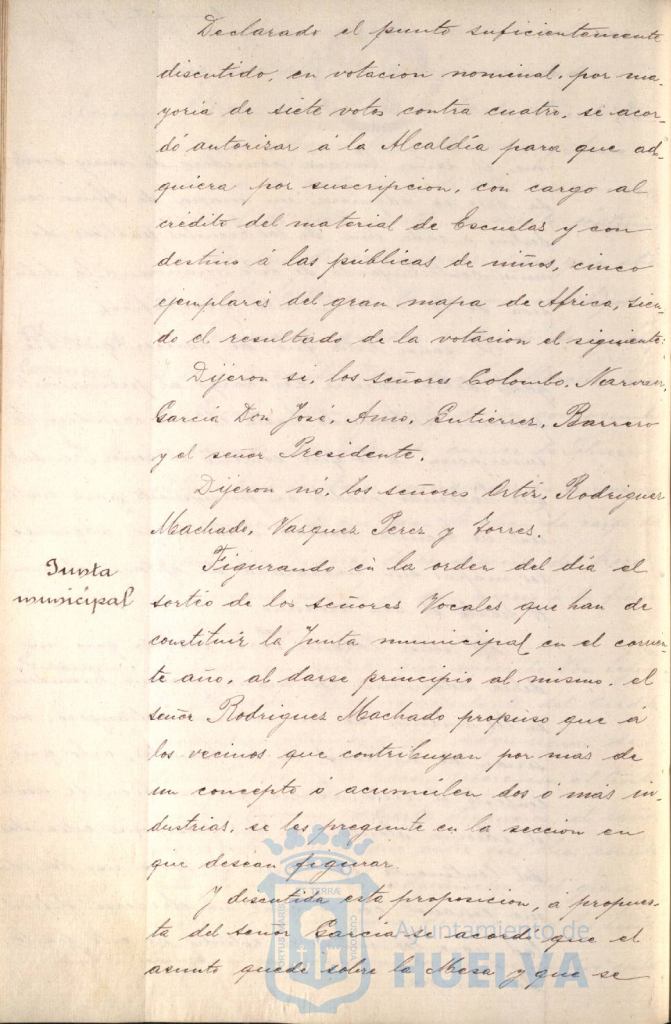 Declarado el punto suficientemente
discutido, en votacion nominal, por ma-
yoría de siete votos contra cuatro, se acor-
dó autorizar á la Alcaldía para que ad-
quiera por suscripcion, con cargo al
crédito del material de Escuelas y con
destino á las públicas de niños, cinco
ejemplares del gran mapa de Africa, sien-
do el resultado de la votacion el siguiente:
Dijeron si, los señores Colombo, Narvaez,
García Don José, Amo, Gutierrez, Barrero
y el señor Presidente.
Dijeron nó, los señores Ortiz, Rodriguez
Machado, Vazquez Perez y Torres.
Junta
municipal
Figurando en la orden del día el
sorteo de los señores Vocales que han de
constituir la Junta municipal en el corrien-
te año, al darse principio al mismo, el
señor Rodriguez Machado propuso que á
los vecinos que contribuyan por más de
un concepto ó acumulen dos ó más in-
dustrias, se les pregunte en la seccion en
que desean figurar.
Y discutida esta proposicion, á propues-
ta del señor García se acordó que el
asunto quede sobre la Mesa y que se
PORTUS MARIS
TERRÆ
CUSTODIA
Ayuntamiento de
HUELVA